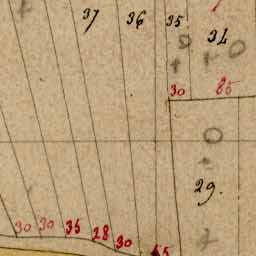 37 36 35
34
30 85
29.
30 30 35 28 30